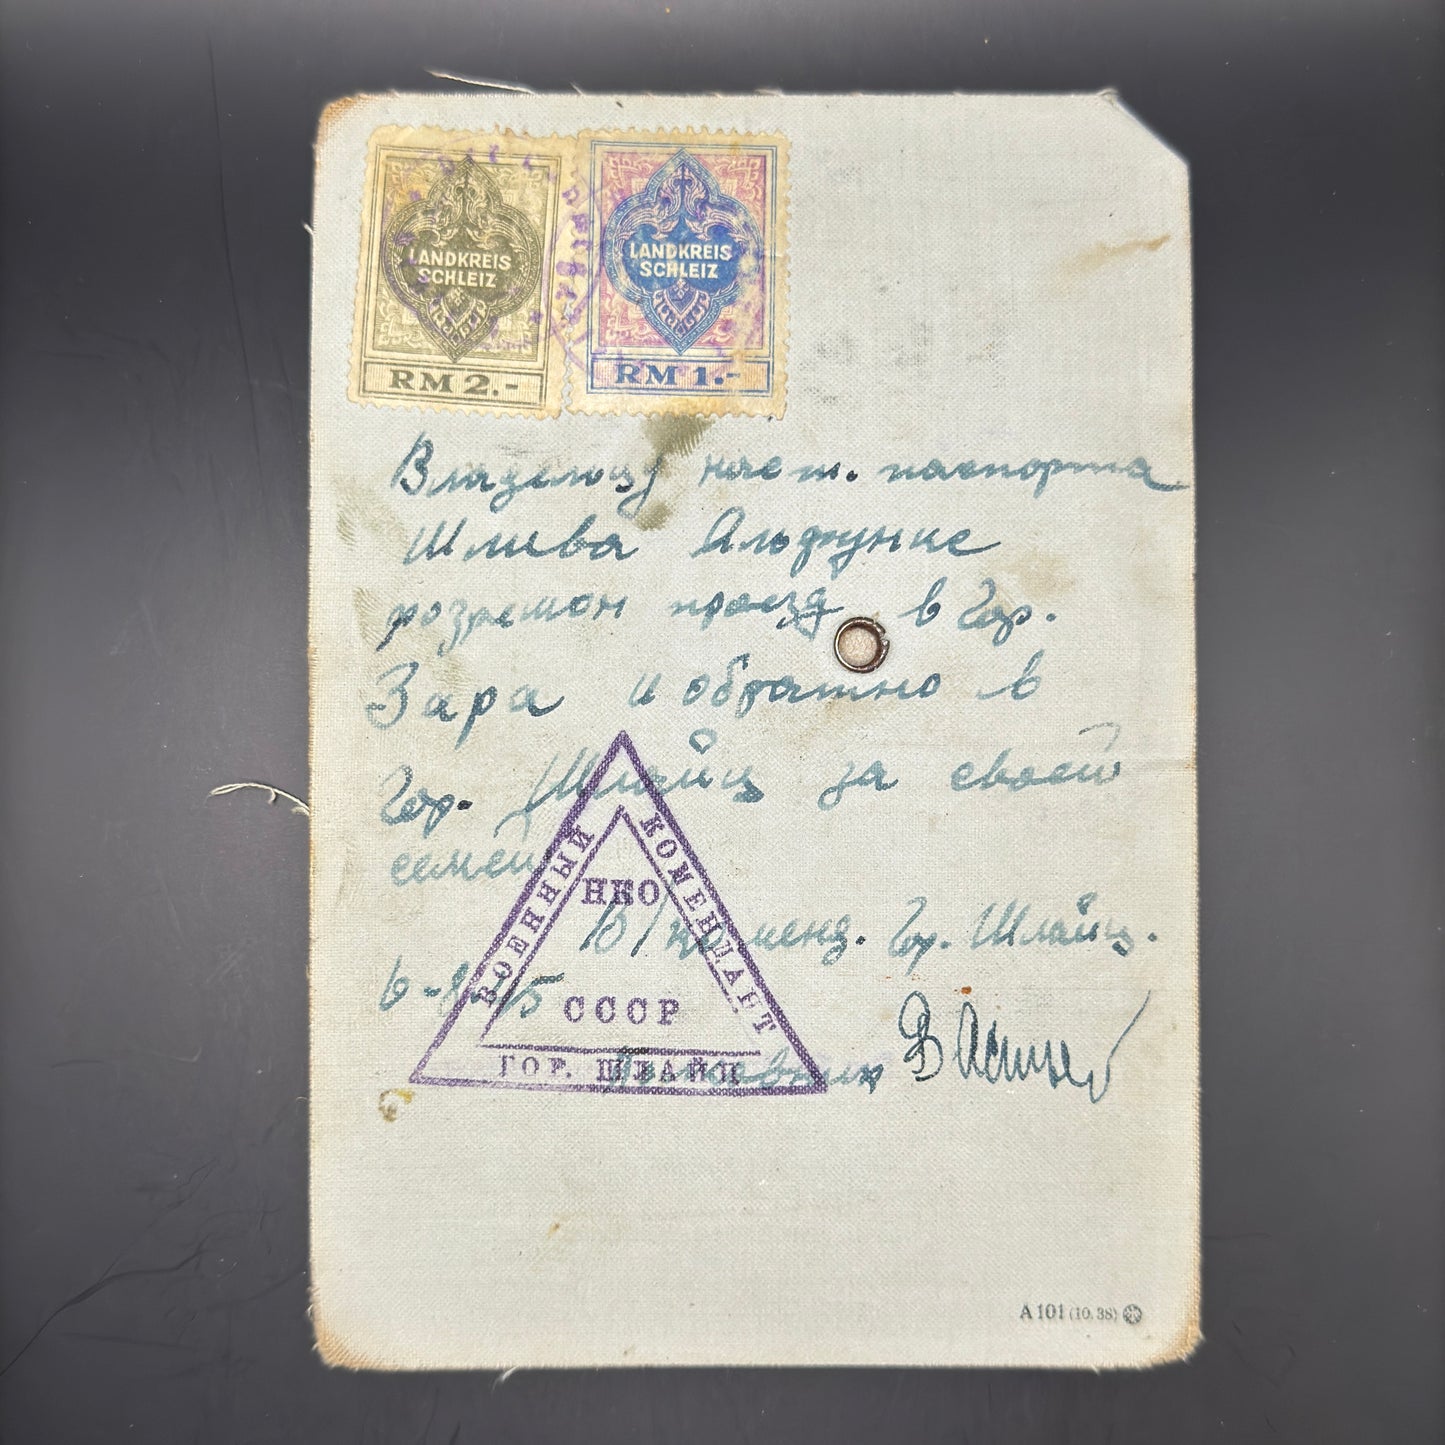 LANDKREIS
SCHLEIZ
RM 2.-
LANDKREIS
SCHLEIZ
RM 1.-
Владельцу наст. паспорта
Шлива Альфункс
розрешон проезд в гор.
Зара и обратно в
Гор. Шлайц за своей
семей
В/коменд. Гор. Шлайц.
6-8-45
Полковник
ВОЕННЫЙ КОМЕНДАНТ
НКО
СССР
ГОР. ШЛАЙЦ
A 101 (10.38)